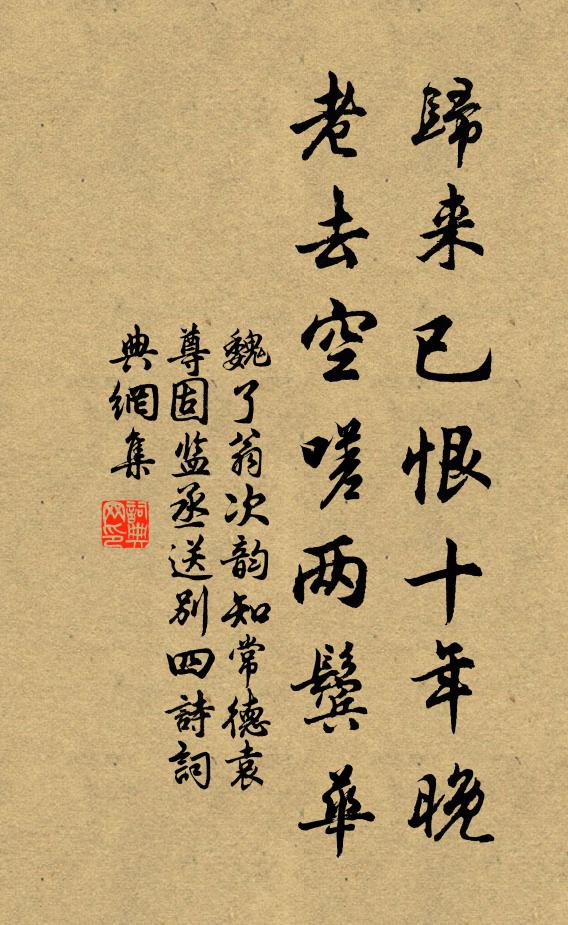 歸来已恨十年晚
老去空嗟两鬢華
魏了翁次韵知常德袁
尊固监丞送别四詩詞
典網集
詞典網印